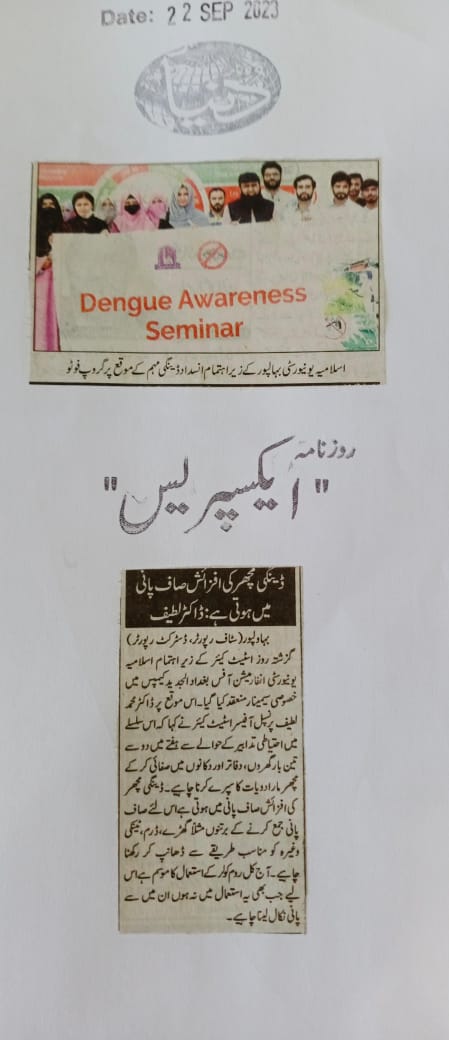 Date: 22 SEP 2023
دنیا
Dengue Awareness
Seminar
اسلامیہ یونیورسٹی بہالپور کے زیر اہتمام انسداد ڈینگی مہم کے موقع پر گروپ فوٹو
روزنامہ
"ایکسپریس"
ڈینگی مچھر کی افزائش صاف پانی
میں ہوتی ہے: ڈاکٹر لطیف
بہاولپور (سٹاف رپورٹر، ڈسٹرکٹ رپورٹر)
گزشتہ روز اسٹیٹ کیئر کے زیر اہتمام اسلامیہ
یونیورسٹی انفارمیشن آفس بغداد الجدید کیمپس میں
خصوصی سیمینار منعقد کیا گیا۔ اس موقع پر ڈاکٹر محمد
لطیف پرنسپل آفیسر اسٹیٹ کیئر نے کہا کہ اس سلسلے
میں احتیاطی تدابیر کے حوالے سے ہفتے میں دو سے
تین بار گھروں، دفاتر اور دکانوں میں صفائی کر کے
مچھر مار ادویات کا سپرے کرنا چاہیے۔ ڈینگی مچھر
کی افزائش صاف پانی میں ہوتی ہے اس لئے صاف
پانی جمع کرنے کے برتنوں مثلاً گھڑے، ڈرم، ٹینکی
وغیرہ کو مناسب طریقے سے ڈھانپ کر رکھنا
چاہیے۔ آج کل روم کولر کے استعمال کا موسم ہے اس
لیے جب بھی یہ استعمال میں نہ ہوں ان میں سے
پانی نکال لینا چاہیے۔